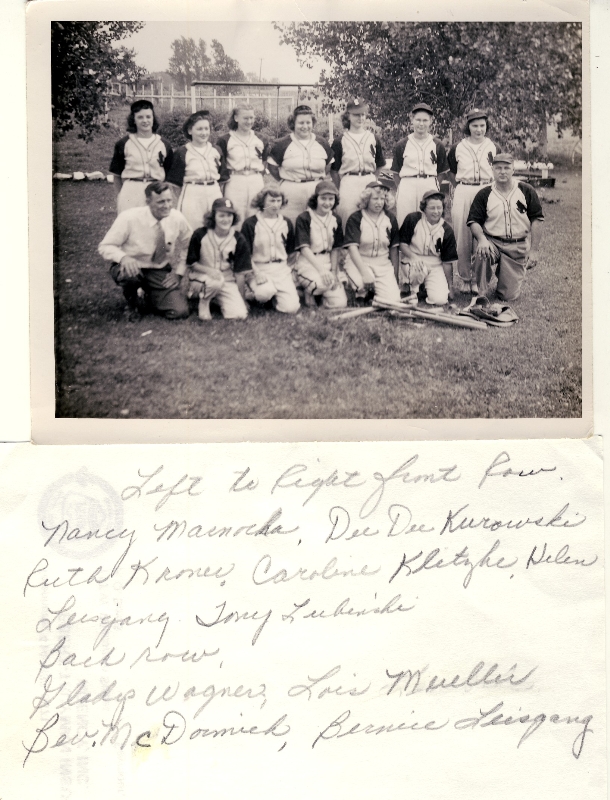 Left to Right front Row.
Nancy Marnocha, Dee Dee Kurowski
Ruth Kroner, Caroline Kletzke, Helen
Leisgang. Tony Lubinski
Back row,
Gladys Wagner, Lois Mueller,
Bev. McDormick, Bernice Leisgang